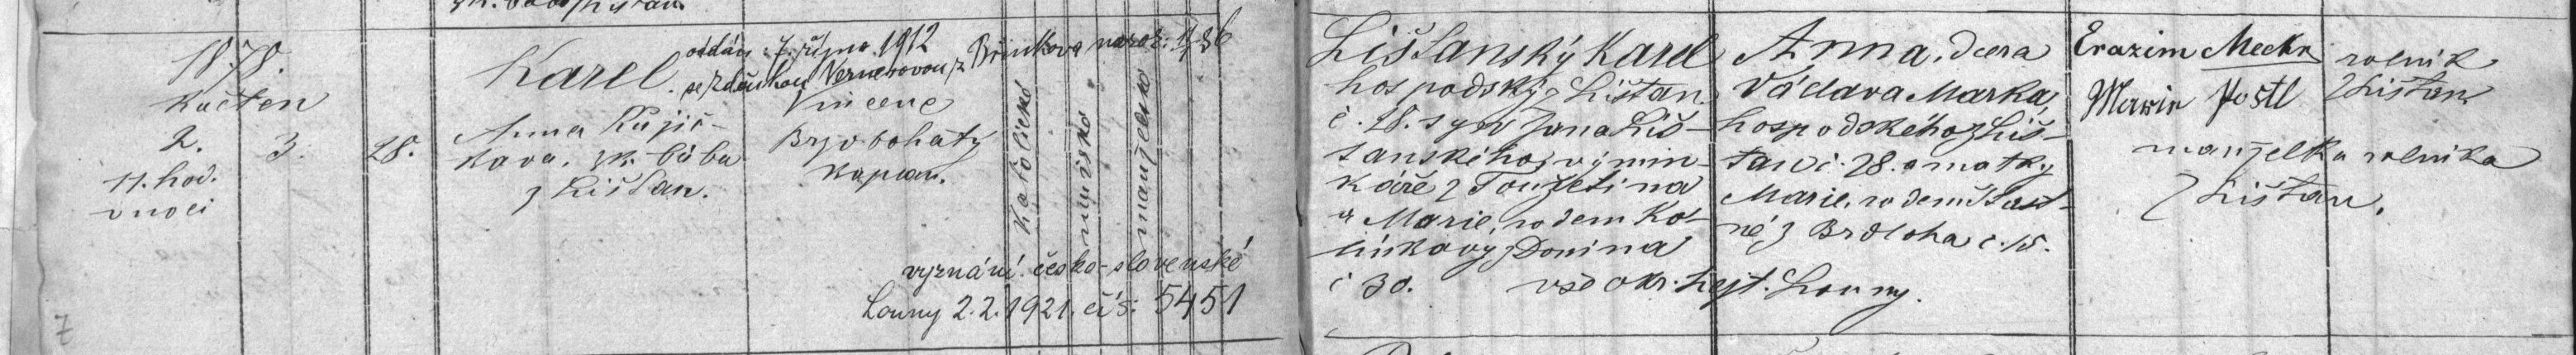 1878.
Květen
2. 3. 28.
11. hod.
v noci
Karel.
oddán 7. října 1912
se Zdeňkou Vernerovou z Břínkova naroz.
Anna
kova, zk. bába
z Lišťan.
Vincenc
Brzobohatý
kaplan.
Katolické
mužské
manželské
vyznání česko-slovenské
Louny 2.2.1921. čís: 5451
Lišťanský Karel
hospodský z Lišťan
č. 28. syn Jana Liš-
ťanského, výmin-
káře z Touřetína
a Marie, rodem Ko-
línkovy z Donína
č 30.
Anna, dcera
Václava Marka,
hospodského z Liš-
ťan č. 28. a matky
Marie, rodem Šťast-
né z Brdloha č. 15.
vše okr. hejt. Louny.
Erazim
rolník
z Lišťan
Postl
manželka rolníka
z Lišťan.
7